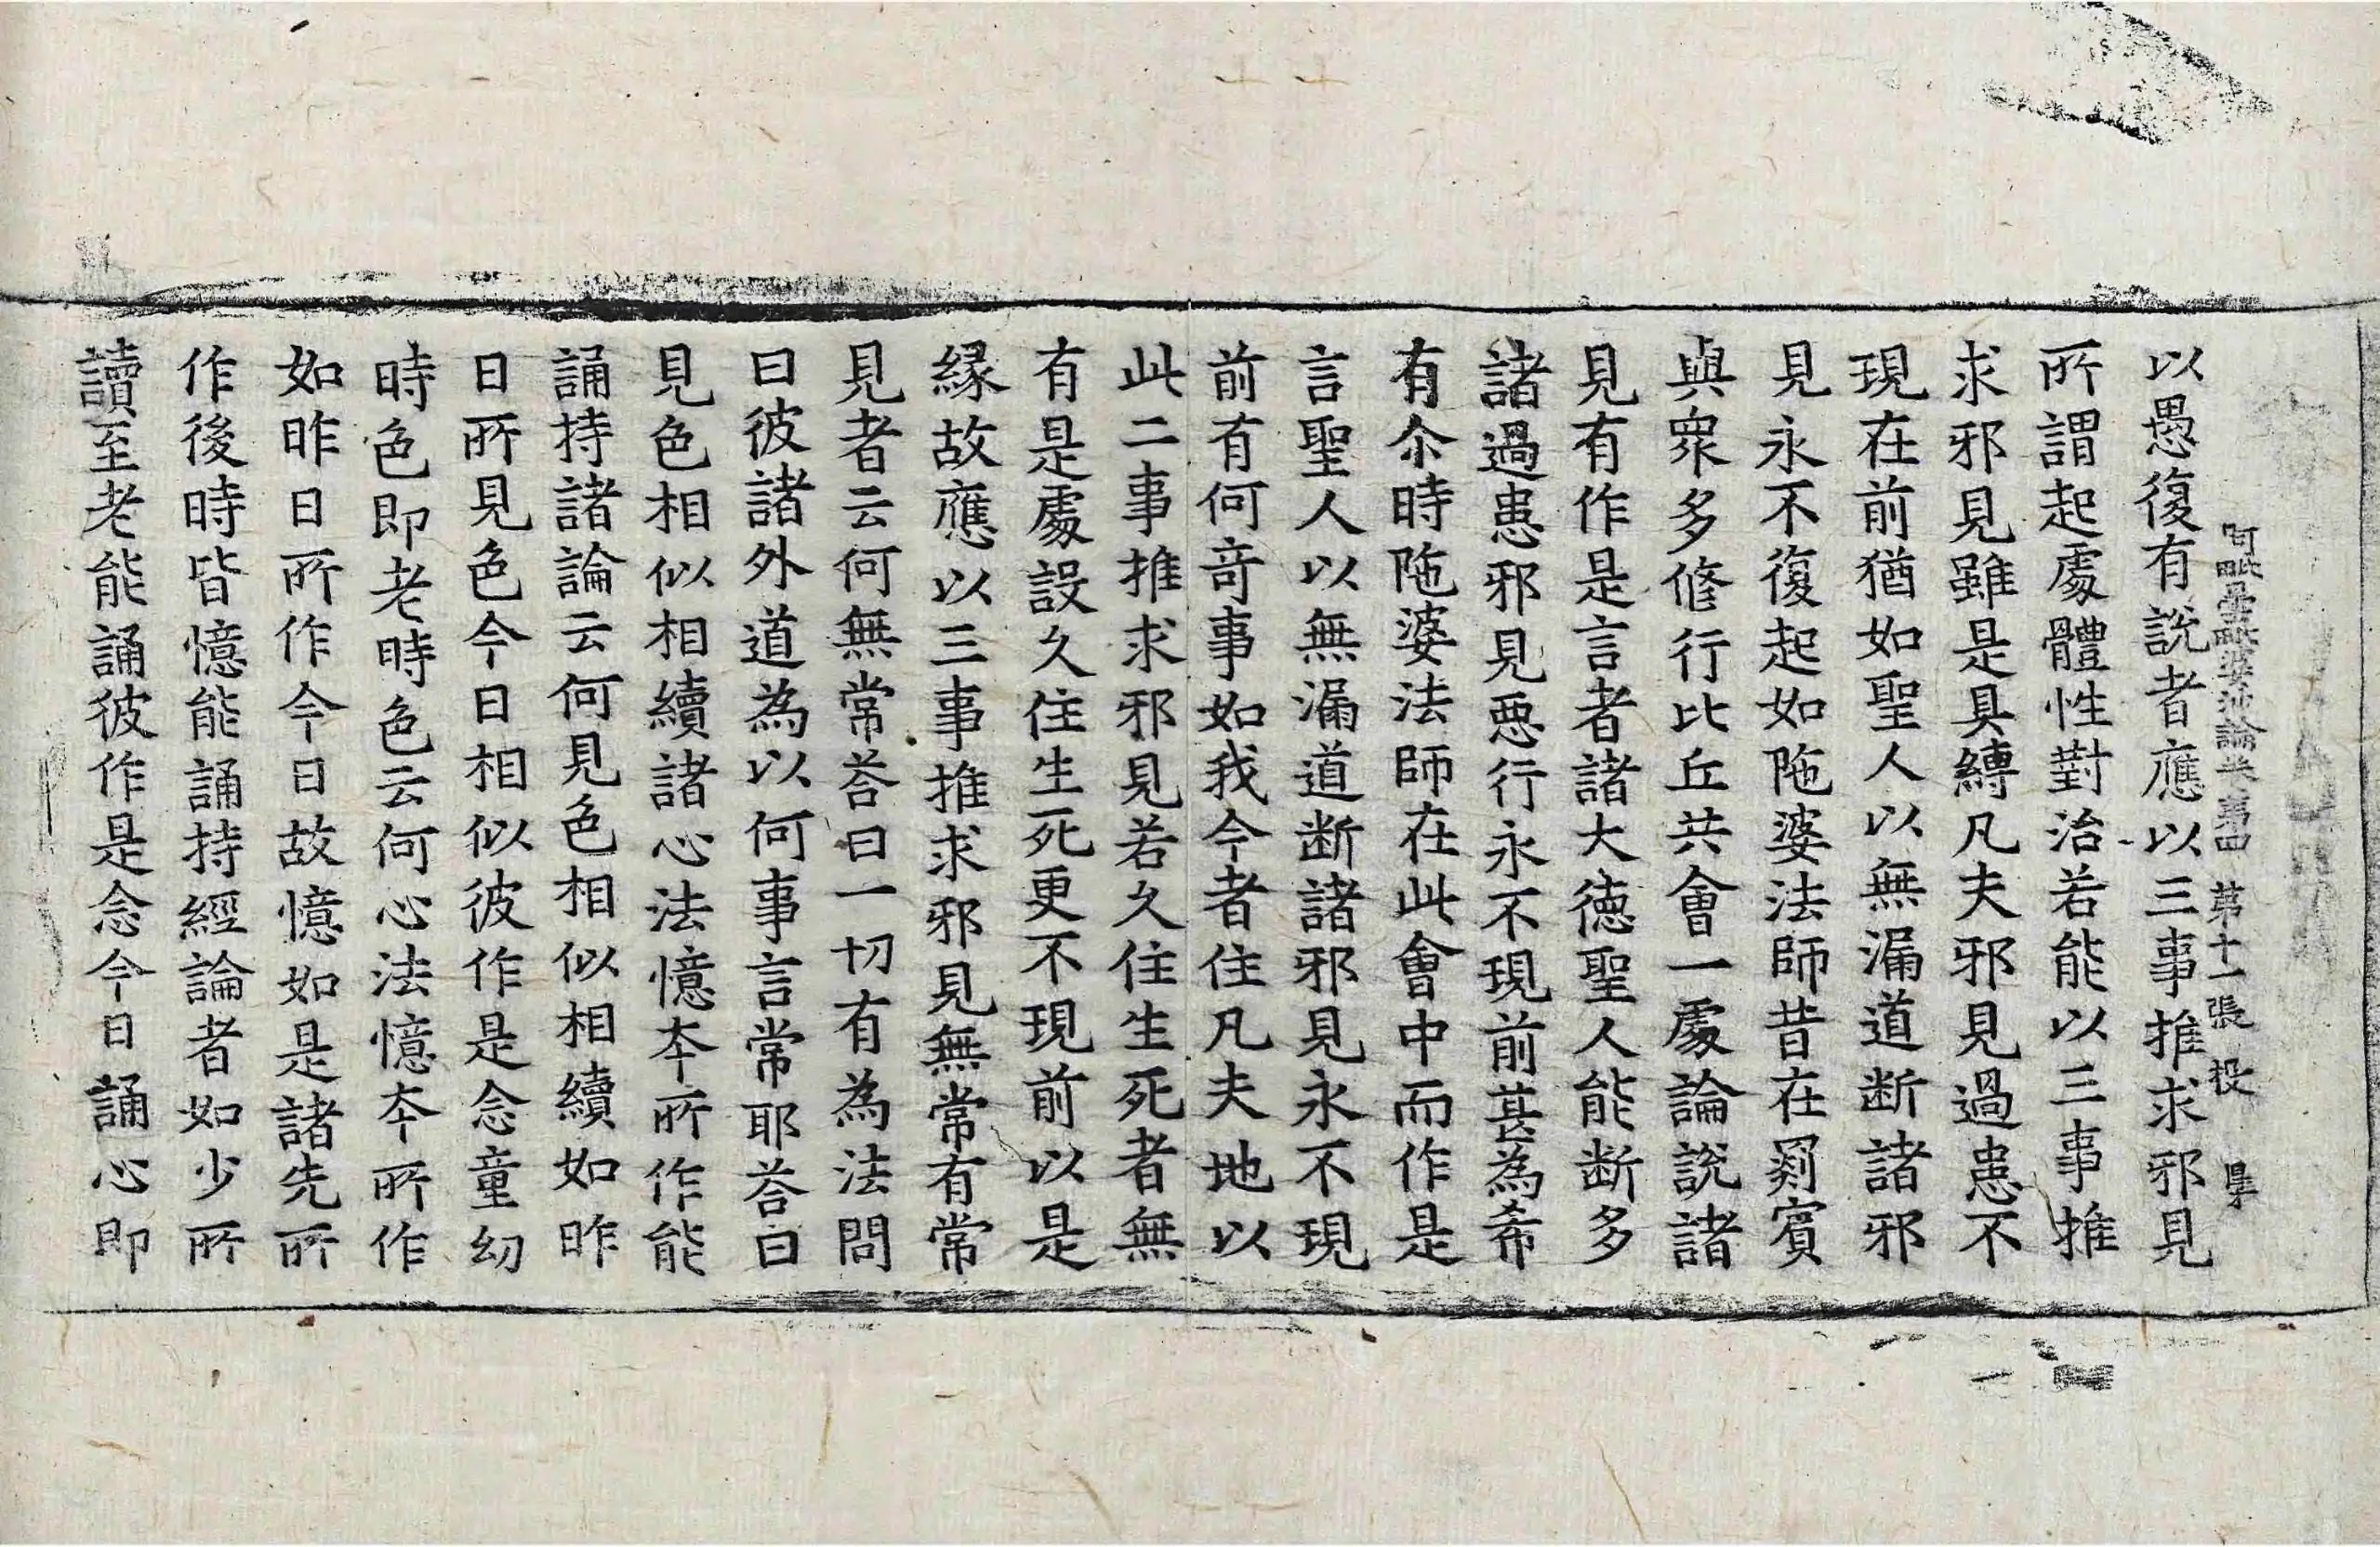 阿毗曇毗婆沙論 第四 第十一張 投
以愚復有說者應以三事推求邪見
所謂起處體性對治若能以三事推
求邪見雖是具縛凡夫邪見過患不
現在前猶如聖人以無漏道断諸邪
見永不復起如陁婆法師昔在罽賓
與眾多修行比丘共會一處論說諸
見有作是言者諸大德聖人能断多
諸過患邪見惡行永不現前甚為希
有尒時陁婆法師在此會中而作是
言聖人以無漏道断諸邪見永不現
前有何竒事如我今者住凡夫地以
此二事推求邪見若久住生死者無
有是處設久住生死更不現前以是
緣故應以三事推求邪見無常有常
見者云何無常荅曰一切有為法問
曰彼諸外道為以何事言常耶荅曰
見色相似相續諸心法憶夲所作能
誦持諸論云何見色相似相續如昨
日所見色今日相似彼作是念童幼
時色即老時色云何心法憶夲所作
如昨日所作今日故憶如是諸先所
作後時皆憶能誦持經論者如少所
讀至老能誦彼作是念今日誦心即